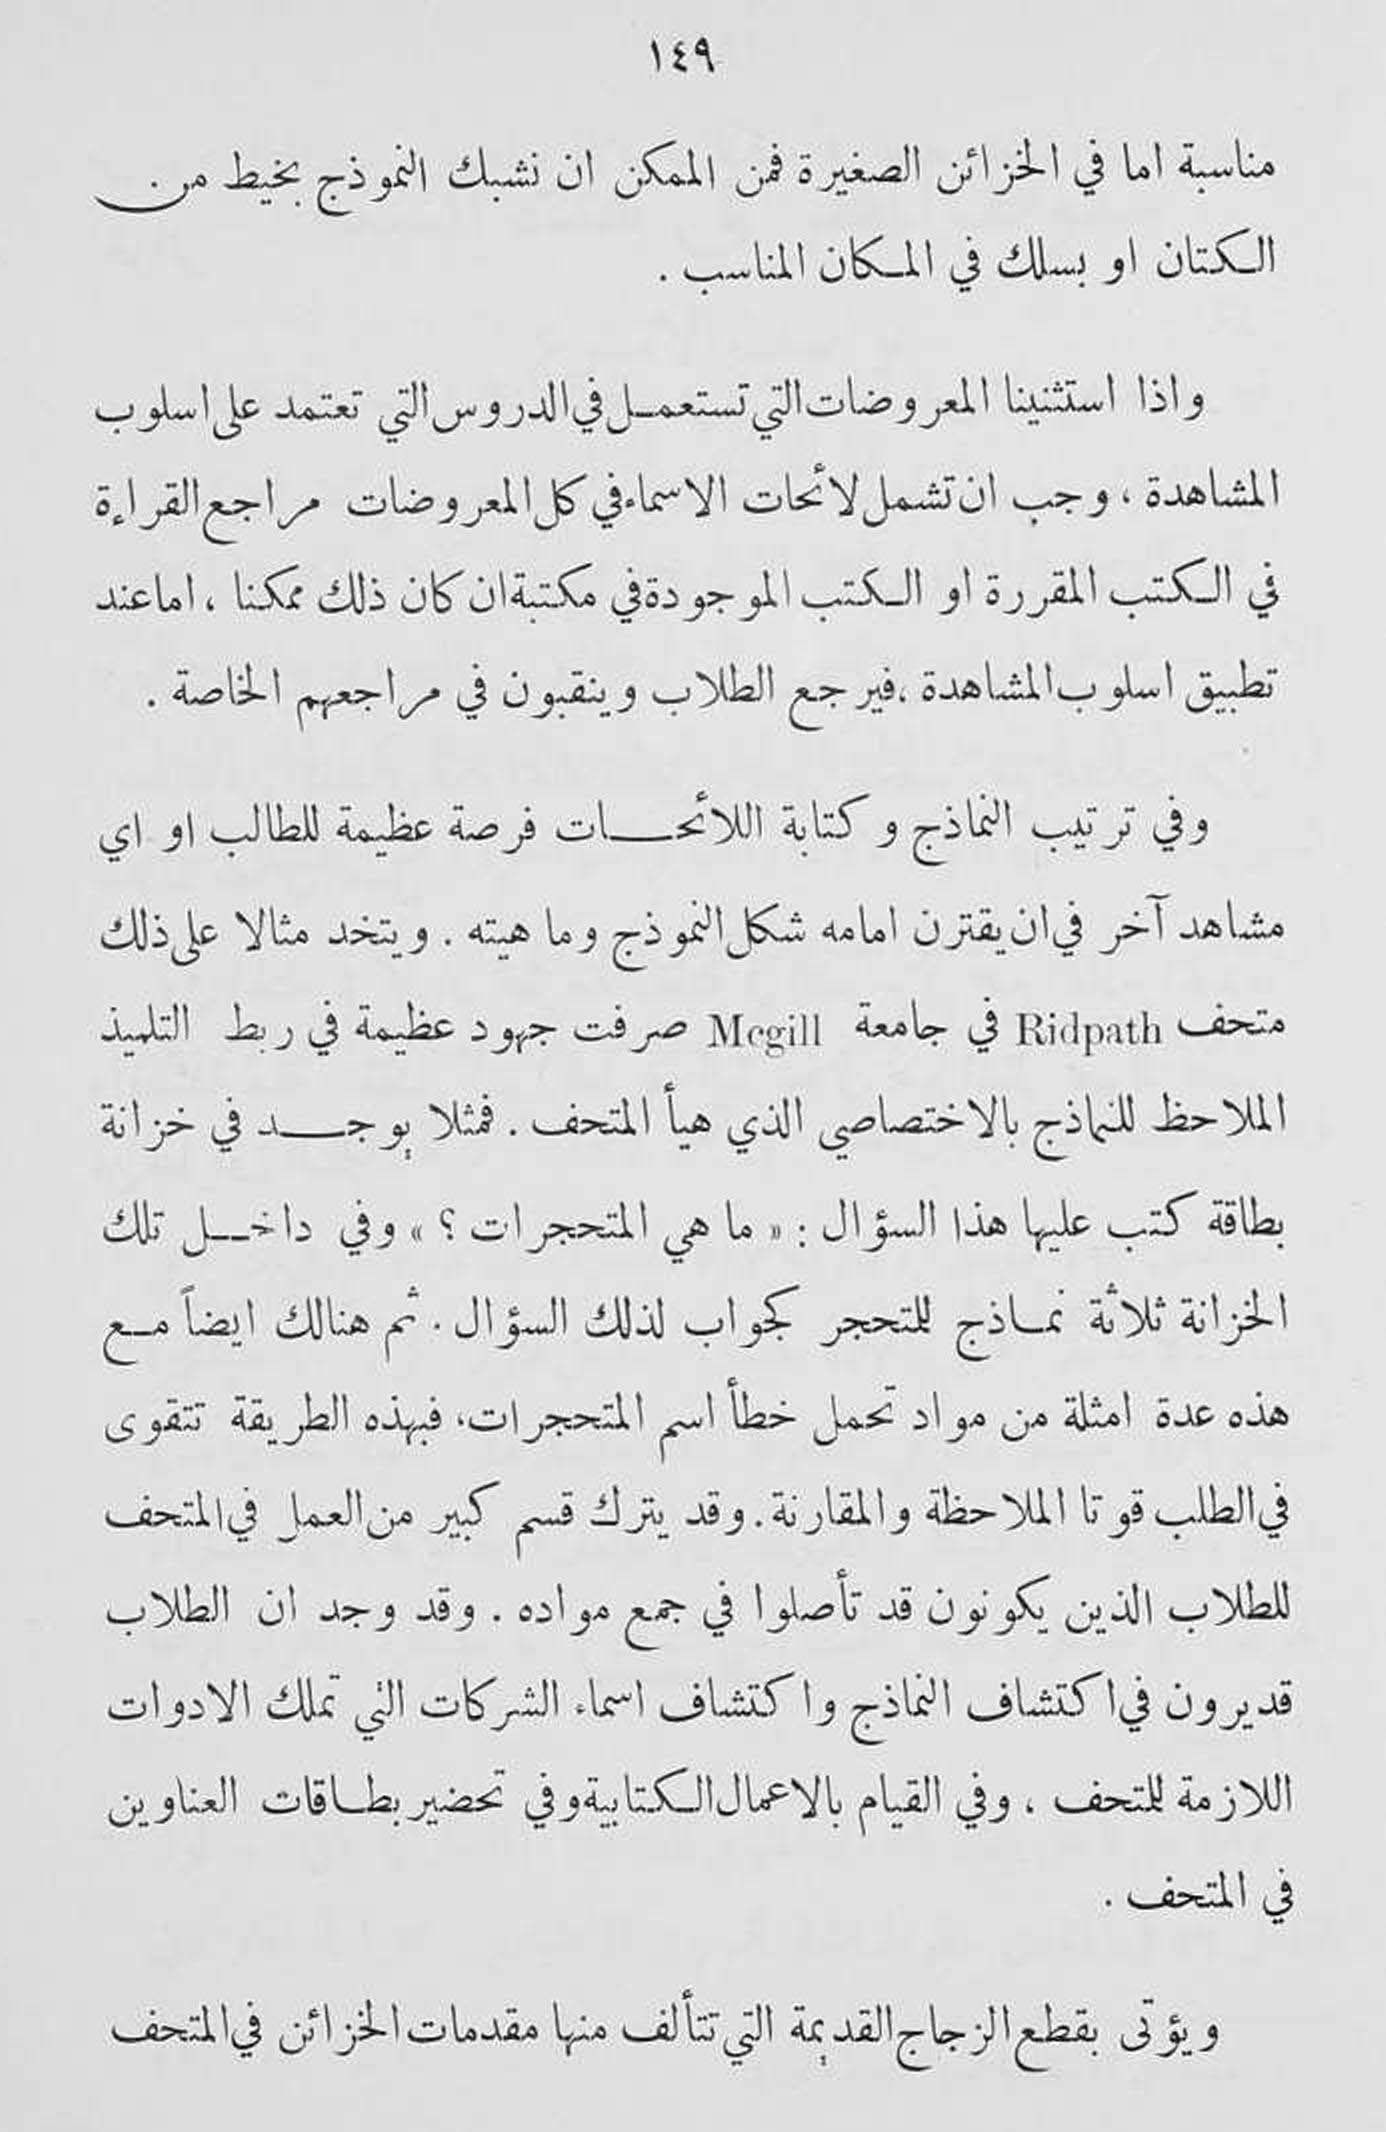 ١٤٩
مناسبة اما في الخزائن الصغيرة فمن الممكن ان نشبك النموذج بخيط من
الكتان او بسلك في المكان المناسب .
واذا استثنينا المعروضات التي تستعمل في الدروس التي تعتمد على اسلوب
المشاهدة ، وجب ان تشمل لائحات الاسماء في كل المعروضات مراجع القراءة
في الكتب المقررة او الكتب الموجودة في مكتبة ان كان ذلك ممكنا ، اما عند
تطبيق اسلوب المشاهدة ، فيرجع الطلاب وينقبون في مراجعهم الخاصة .
وفي ترتيب النماذج وكتابة اللائحات فرصة عظيمة للطالب او اي
مشاهد آخر في ان يقترن امامه شكل النموذج وماهيته . ويتخد مثالا على ذلك
متحف Ridpath في جامعة Mcgill صرفت جهود عظيمة في ربط التلميذ
الملاحظ للنماذج بالاختصاصي الذي هيأ المتحف . فمثلا يوجد في خزانة
بطاقة كتب عليها هذا السؤال : « ما هي المتحجرات ؟ » وفي داخل تلك
الخزانة ثلاثة نماذج للمتحجر كجواب لذلك السؤال . ثم هنالك ايضاً مع
هذه عدة امثلة من مواد تحمل خطأ اسم المتحجرات ، فبهذه الطريقة تتقوى
في الطلب قوتا الملاحظة والمقارنة . وقد يترك قسم كبير من العمل في المتحف
للطلاب الذين يكونون قد تأصلوا في جمع مواده . وقد وجد ان الطلاب
قديرون في اكتشاف النماذج واكتشاف اسماء الشركات التي تملك الادوات
اللازمة للمتحف ، وفي القيام بالاعمال الكتابية وفي تحضير بطاقات العناوين
في المتحف .
ويؤتى بقطع الزجاج القديمة التي تتألف منها مقدمات الخزائن في المتحف